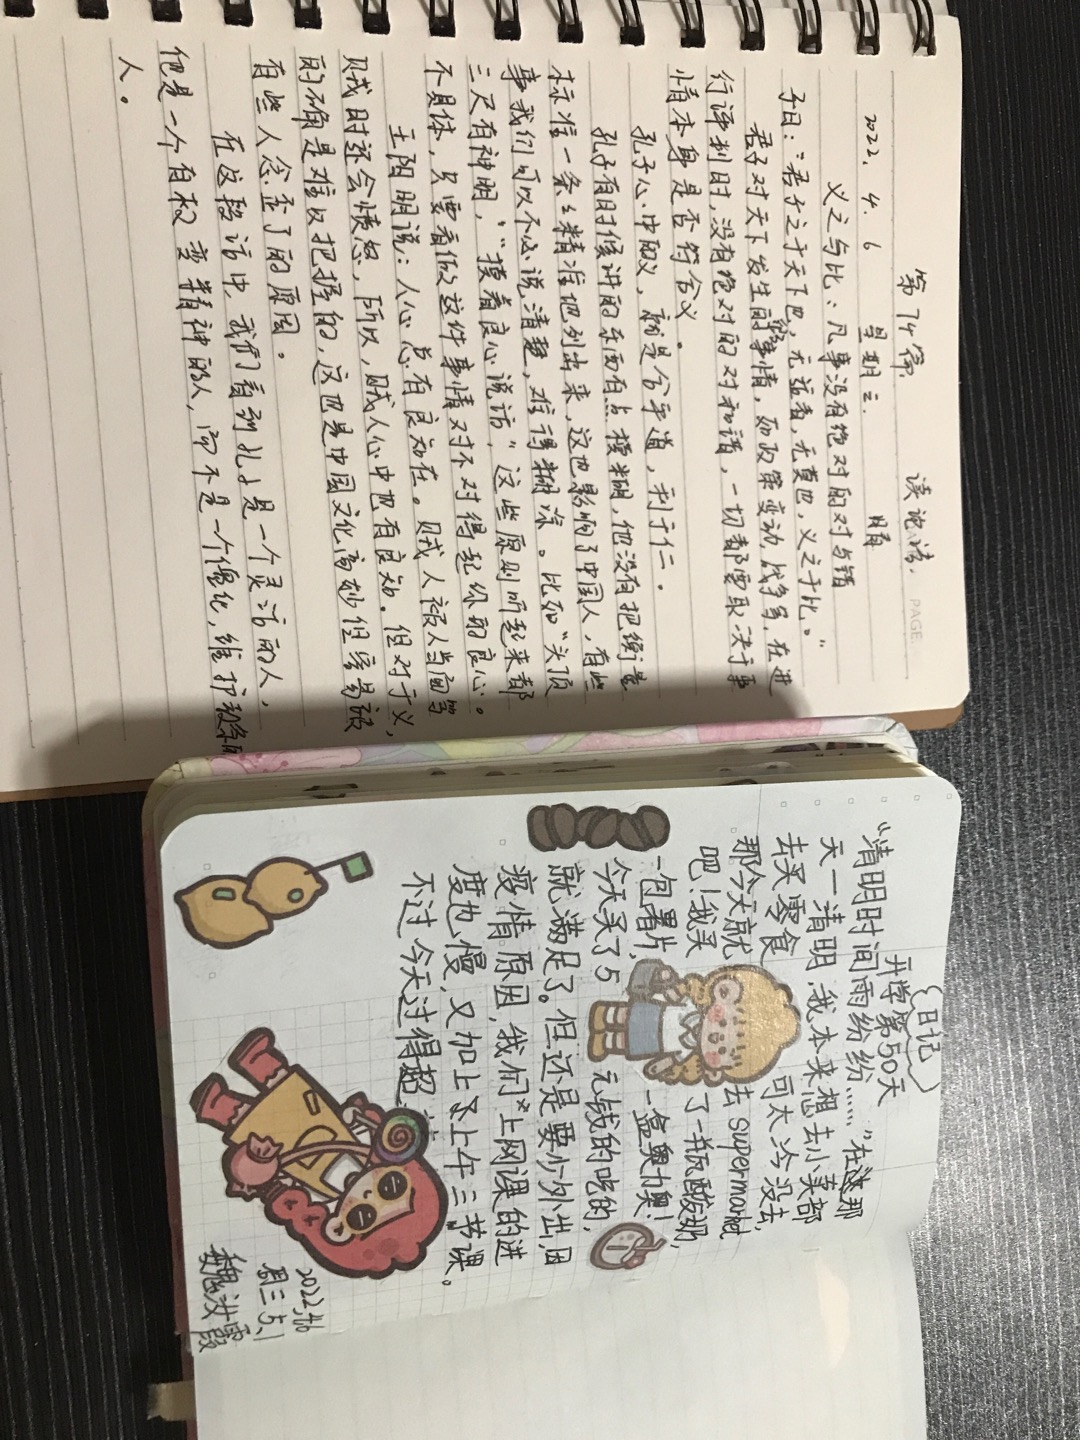 第74篇 读论语.
PAGE
2022. 4. 6 星期三. 晴
义之与比：凡事没有绝对的对与错
子曰："君子之于天下也，无适者，无莫也，义之于比。"
君子对天下发生的事情，如政策变动，战争等，在进
行评判时，没有绝对的对和错，一切都要取决于事
情本身是否符合义。
孔子心中的义，就是合乎道，利于仁。
孔子有时候讲的东西有点模糊，他没有把衡量
标准一条々精准地列出来，这也影响了中国人，有些
事我们可以不必说清楚，难得糊涂。比如"头顶
三尺有神明，""摸着良心说话"这些原则听起来都
不具体，只要看做这件事情对不对得起你的良心。
王阳明说：人心总有良知在。贼人被人当面骂
贼时还会愤怒，所以，贼人心中也有良知。但对于义，
的确是难以把握的，这也是中国文化高妙但容易被
有些人念歪了的原因。
在这段话中，我们看到孔子是一个灵活的人，
他是一个有权变精神的人，而不是一个僵化，维护教条的
人。
日记
开学第50天
"清明时间雨纷纷……"在那
天一清明，我本来想去小美部
去买零食 可太冷没去，
那今天就 去supermarket
吧！我买 了一瓶酸奶，
一包薯片， 一盒奥力奥！
今天买了5 元钱的吃的，
就满足了。但还是要少外出，因
疫情原因，我们上网课的进
度也慢，又加上上午三节课。
不过今天过得超
2022,4.6
周三
魏汝霞